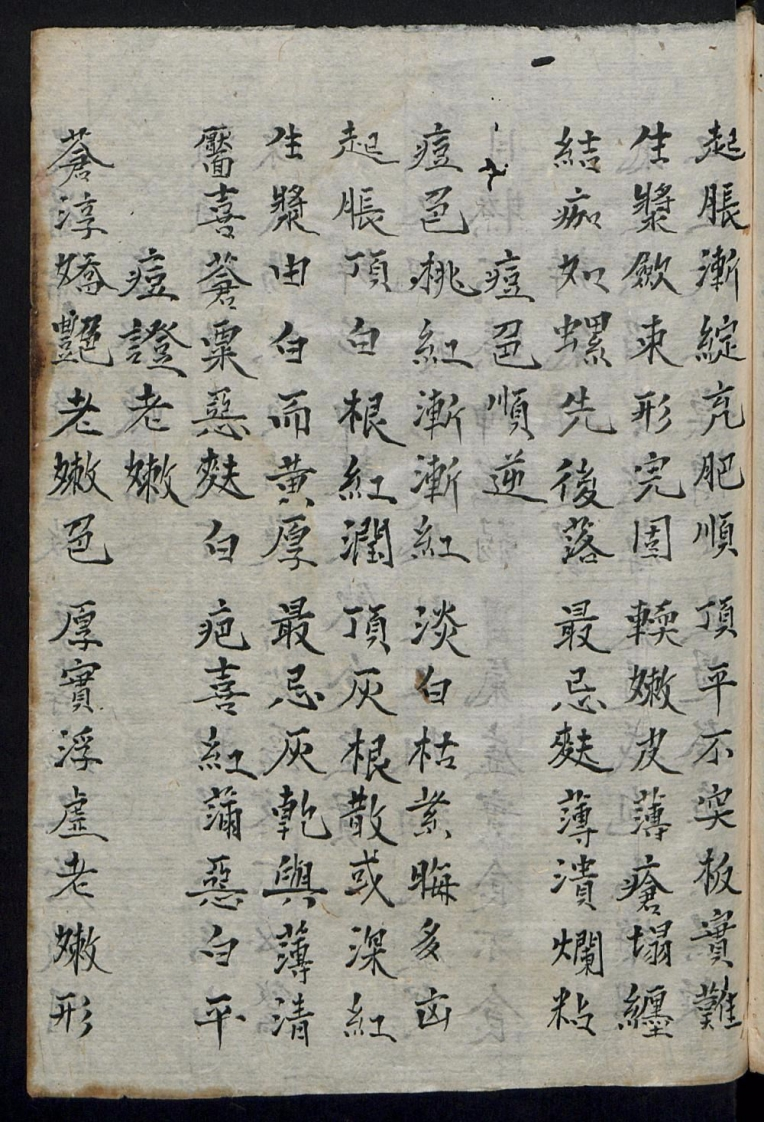 起脹漸綻充肥順　頂平不突板實難
生漿斂束形完固　輭嫩皮薄瘡塌纏
結痂如螺先後落　最忌麩薄潰爛粘
痘色順逆
痘色桃紅漸漸紅　淡白枯紫晦多凶
起脹頂白根紅潤　頂灰根散或深紅
生漿由白而黃厚　最忌灰乾與薄清
靨喜蒼栗惡麩白　疤喜紅滿惡白平
痘證老嫩
蒼淳嬌艷老嫩色　厚實浮虛老嫩形